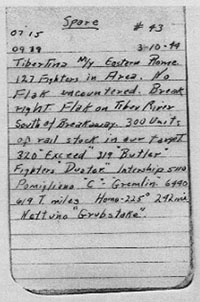 Spare # 43
0715
0939 3-10-44
Tibertina M/y Eastern Rome
127 Fighters in Area. No
Flak encountered. Break
right Flak on Tiber River
South of Breakaway. 300 Units
of rail stock in our target
320 "Exceed" 319 "Butler"
Fighters "Doctor" Intership 5110
Pomigliano "C" "Gremlin" 6440
619 T. miles Home-225° 242 mi
Nettuno "Grubstake"